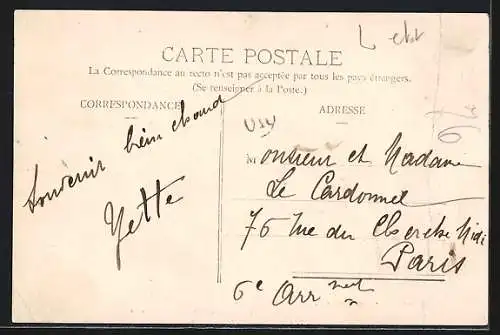 CARTE POSTALE
La Correspondance au recto n'est pas acceptée par tous les pays étrangers.
(Se renseigner à la Poste.)
CORRESPONDANCE
ADRESSE
Souvenir bien chaud
Yette
Monsieur et Madame
Le Cardonnel
76 Rue du Cherche Midi
Paris
6e Arr